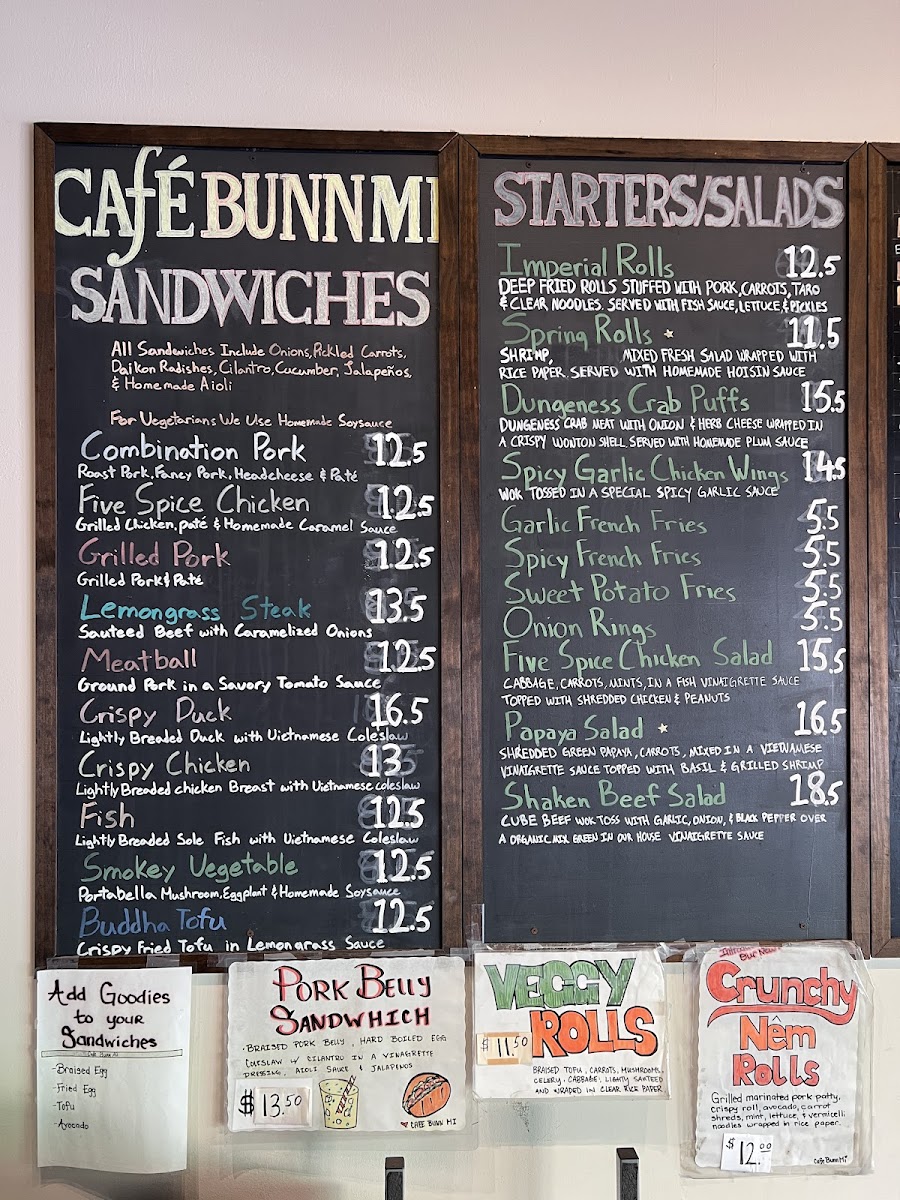 CAFÉ BUNN MI
SANDWICHES
All Sandwiches Include Onions, Pickled Carrots,
Daikon Radishes, Cilantro, Cucumber, Jalapeños,
& Homemade Aioli
For Vegetarians We Use Homemade Soysauce
Combination Pork 12.5
Roast Pork, Fancy Pork, Headcheese & Paté
Five Spice Chicken 12.5
Grilled Chicken, paté & Homemade Caramel Sauce
Grilled Pork 12.5
Grilled Pork & Paté
Lemongrass Steak 13.5
Sauteed Beef with Caramelized Onions
Meatball 12.5
Ground Pork in a Savory Tomato Sauce
Crispy Duck 16.5
Lightly Breaded Duck with Vietnamese Coleslaw
Crispy Chicken 13
Lightly Breaded chicken Breast with Vietnamese coleslaw
Fish 12.5
Lightly Breaded Sole Fish with Vietnamese Coleslaw
Smokey Vegetable 12.5
Portabella Mushroom, Eggplant & Homemade Soysauce
Buddha Tofu 12.5
Crispy Fried Tofu in Lemongrass Sauce
STARTERS/SALADS
Imperial Rolls 12.5
DEEP FRIED ROLLS STUFFED WITH PORK, CARROTS, TARO
& CLEAR NOODLES. SERVED WITH FISH SAUCE, LETTUCE, & PICKLES
Spring Rolls 11.5
SHRIMP, MIXED FRESH SALAD WRAPPED WITH
RICE PAPER. SERVED WITH HOMEMADE HOISIN SAUCE
Dungeness Crab Puffs 15.5
DUNGENESS CRAB MEAT WITH ONION & HERB CHEESE WRAPPED IN
A CRISPY WONTON SHELL SERVED WITH HOMEMADE PLUM SAUCE
Spicy Garlic Chicken Wings 14.5
WOK TOSSED IN A SPECIAL SPICY GARLIC SAUCE
Garlic French Fries 5.5
Spicy French Fries 5.5
Sweet Potato Fries 5.5
Onion Rings 5.5
Five Spice Chicken Salad 15.5
CABBAGE, CARROTS, MINTS, IN A FISH VINAIGRETTE SAUCE
TOPPED WITH SHREDDED CHICKEN & PEANUTS
Papaya Salad 16.5
SHREDDED GREEN PAPAYA, CARROTS, MIXED IN A VIETNAMESE
VINAIGRETTE SAUCE TOPPED WITH BASIL & GRILLED SHRIMP
Shaken Beef Salad 18.5
CUBE BEEF WOK TOSS WITH GARLIC, ONION, & BLACK PEPPER OVER
A ORGANIC MIX GREEN IN OUR HOUSE VINAIGRETTE SAUCE
Add Goodies
to your
Sandwiches
-Braised Egg
-Fried Egg
-Tofu
-Avocado
PORK BELLY
SANDWHICH
BRAISED PORK BELLY, HARD BOILED EGG
COLESLAW W/ CILANTRO IN A VINAGRETTE
DRESSING, AIOLI SAUCE & JALAPENOS
$13.50
CAFE BUNN MI
VEGGY
ROLLS
$11.50
BRAISED TOFU, CARROTS, MUSHROOMS,
CELERY, CABBAGE, LIGHTY SAUTEED
AND WRADED IN CLEAR RICE PAPER
Our New
Crunchy
Nêm
Rolls
Grilled marinated pork patty,
crispy roll, avocado, carrot
shreds, mint, lettuce, & vermicelli
noodles wrapped in rice paper.
$12.00
Cafe Bunn Mi